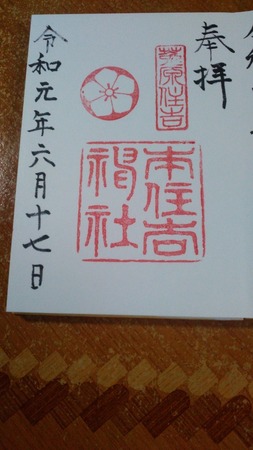 奉拝
菟原住吉
本住吉
神社
令和元年六月十七日